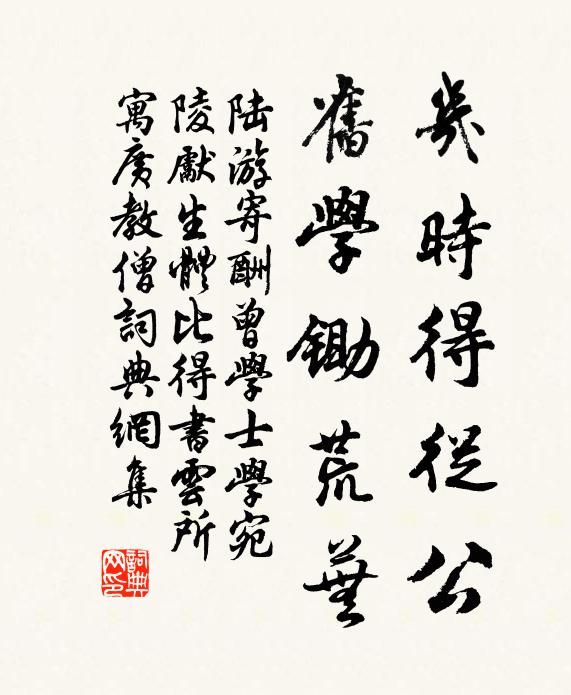 幾時得從公
舊學鋤荒蕪
陆游寄酬曾學士學宛
陵獻生體比得書雲所
寓廣教僧詞典網集
詞典网印